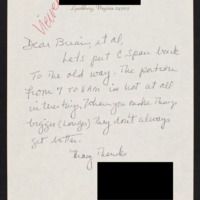 Viewer
Lynchburg, Virginia 24503
Dear Brian, et al,
Let's put C Span back
To the old way. The portion
from 7 to 8 AM is not at all
interesting. When you make things
bigger (longer) They don't always
get better.
Many Thanks